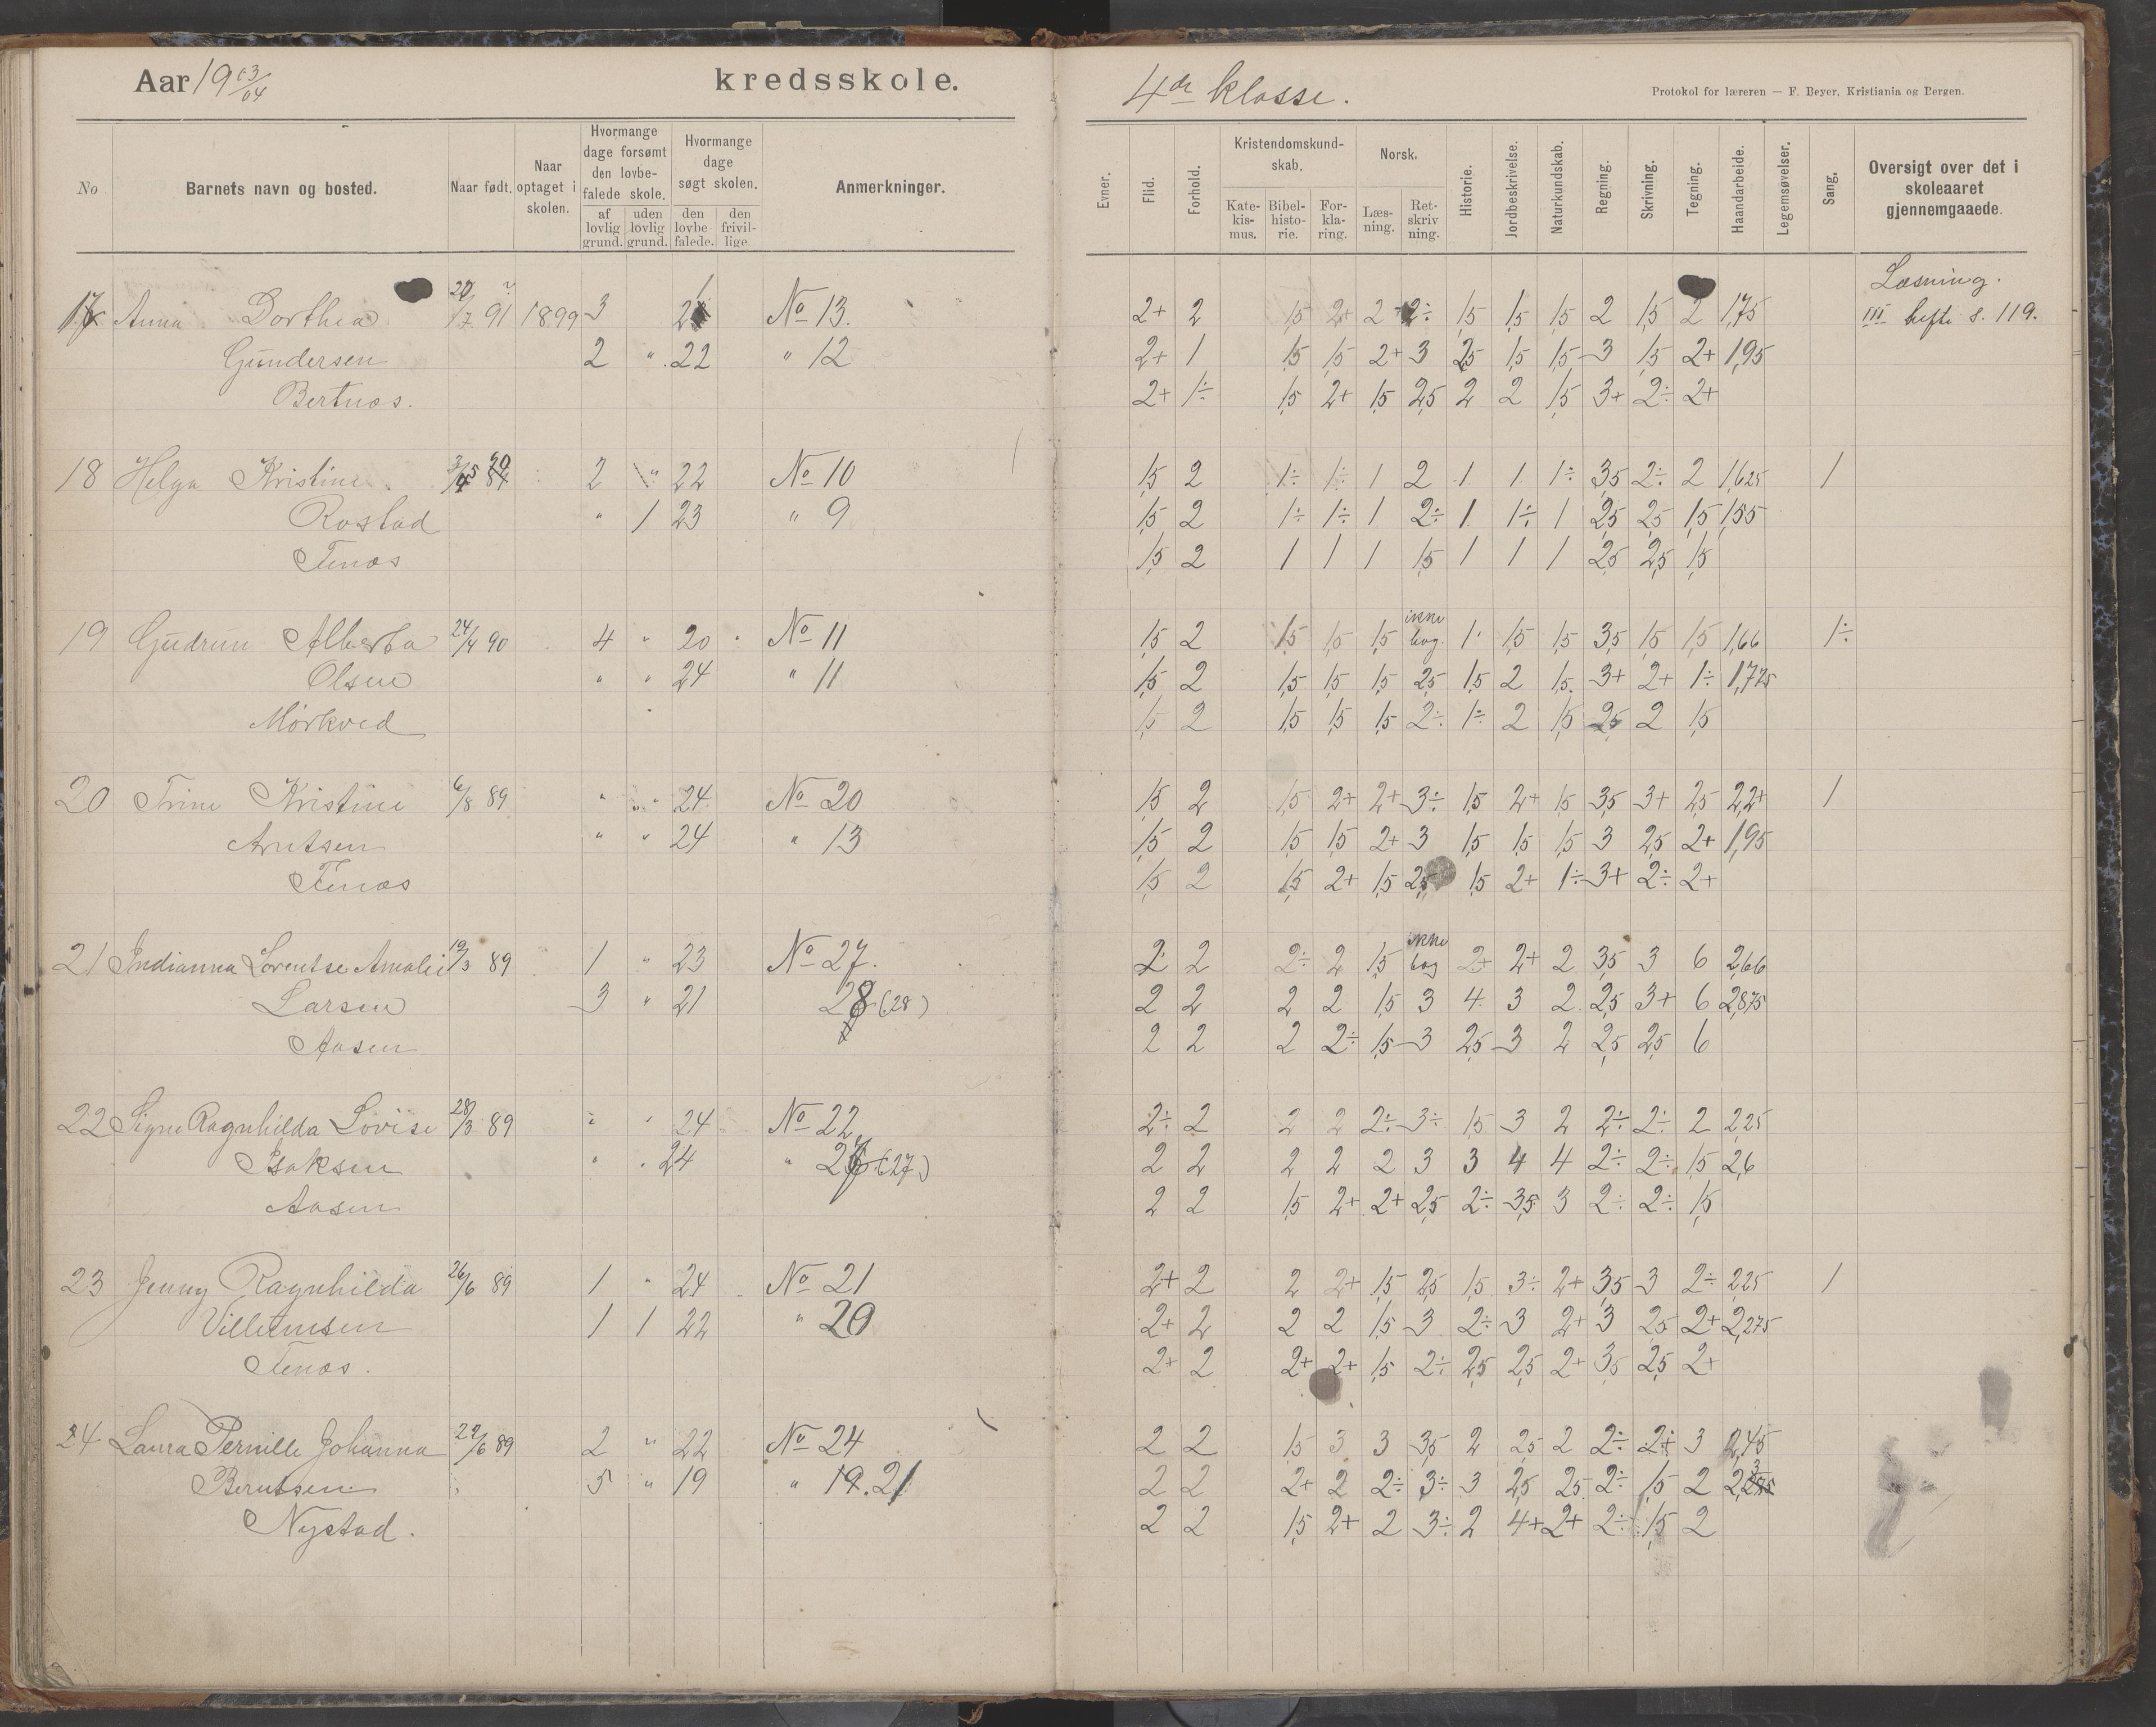 Aar 19 03/04 kredsskole.
4de klasse.
Protokol for læreren — F. Beyer, Kristiania og Bergen.
No
Barnets navn og bosted.
Naar født.
Naar optaget i skolen.
Hvormange dage forsømt den lovbefalede skole.
af lovlig grund.
uden lovlig grund.
Hvormange dage søgt skolen.
den lovbefalede.
den frivillige.
Anmerkninger.
Evner.
Flid.
Forhold.
Kristendomskundskab.
Katekismus.
Bibelhistorie.
Forklaring.
Norsk.
Læsning.
Retskrivning.
Historie.
Jordbeskrivelse.
Naturkundskab.
Regning.
Skrivning.
Tegning.
Haandarbeide.
Legemsøvelser.
Sang.
Oversigt over det i skoleaaret gjennemgaaede.
Læsning.
17 Anna Dorthea 20/7 91 1899 3 21 No 13. 2+ 2 1,5 2+ 2+ 2÷ 1,5 1,5 1,5 2 1,5 2 1,75 III hefte s. 119.
Gundersen 2 " 22 " 12 2+ 1 1,5 1,5 2+ 3 2,5 1,5 1,5 3 1,5 2+ 1,95
Bertnæs. 2+ 1÷ 1,5 2+ 1,5 2,5 2 2 1,5 3+ 2÷ 2+
18 Helga Kristine 2 " 22 No 10 1,5 2 1÷ 1÷ 1 2 1 1 1÷ 3,5 2÷ 2 1,625 1
Rostad " 1 23 " 9 1,5 2 1÷ 1÷ 1 2÷ 1 1÷ 1 2,5 2,5 1,5 1,55
Tenæs 1,5 2 1 1 1 1,5 1 1 1 2,5 2,5 1,5
19 Gudrun Alberta 24/4 90 4 " 20 No 11 1,5 2 1,5 1,5 1,5 ikke bog. 1 1,5 1,5 3,5 1,5 1,5 1,66 1÷
Olsen " " 24 " 11 1,5 2 1,5 1,5 1,5 2,5 1,5 2 1,5 3+ 2+ 1÷ 1,775
Mørkved 1,5 2 1,5 1,5 1,5 2÷ 1÷ 2 1,5 2,5 2 1,5
20 Trine Kristine 6/8 89 " " 24 No 20 1,5 2 1,5 2+ 2+ 3÷ 1,5 2+ 1,5 3,5 3+ 2,5 2,2+ 1
Arntsen " " 24 " 13 1,5 2 1,5 1,5 2+ 3 1,5 1,5 1,5 3 2,5 2+ 1,95
Tenæs 1,5 2 1,5 2+ 1,5 2,5 1,5 2+ 1÷ 3+ 2÷ 2+
21 Indianna Lorentse Amalie 19/3 89 1 " 23 No 27. 2 2 2÷ 2 1,5 ikke bog 2+ 2+ 2 3,5 3 6 2,66
Larsen 3 " 21 28 (28) 2 2 2 2 1,5 3 4 3 2 2,5 3+ 6 2,875
Aasen 2 2 2 2÷ 1,5 3 2,5 3 2 2,5 2,5 6
22 Signe Ragnhilda Lovise 28/3 89 " " 24 No 22 2÷ 2 2 2 2÷ 3÷ 1,5 3 2 2÷ 2÷ 2 2,25
Isaksen " " 24 " (27) 2 2 2 2 2 3 3 4 4 2÷ 2÷ 1,5 2,6
Aasen 2 2 1,5 2+ 2+ 2,5 2÷ 3,5 3 2÷ 2÷ 1,5
23 Jenny Ragnhilda 26/6 89 1 " 24 No 21 2+ 2 2 2+ 1,5 2,5 1,5 3÷ 2+ 3,5 3 2÷ 2,25 1
Villumsen 1 1 22 " 20 2+ 2 2 2 1,5 3 2÷ 3 2+ 3 2,5 2+ 2,275
Tenæs. 2+ 2 2+ 2+ 1,5 2÷ 2,5 2,5 2+ 3,5 2,5 2+
24 Laura Pernille Johanna 22/6 89 2 " 22 No 24 2 2 1,5 3 3 3,5 2 2,5 2 2÷ 2÷ 3 2,45
Berntsen 5 " 19 " 19. 21 2 2 2+ 2 2÷ 3÷ 3 2,5 2,5 2÷ 1,5 2 2,3
Nystad. 2 2 1,5 2+ 2 3÷ 2 4+ 2+ 2÷ 1,5 2